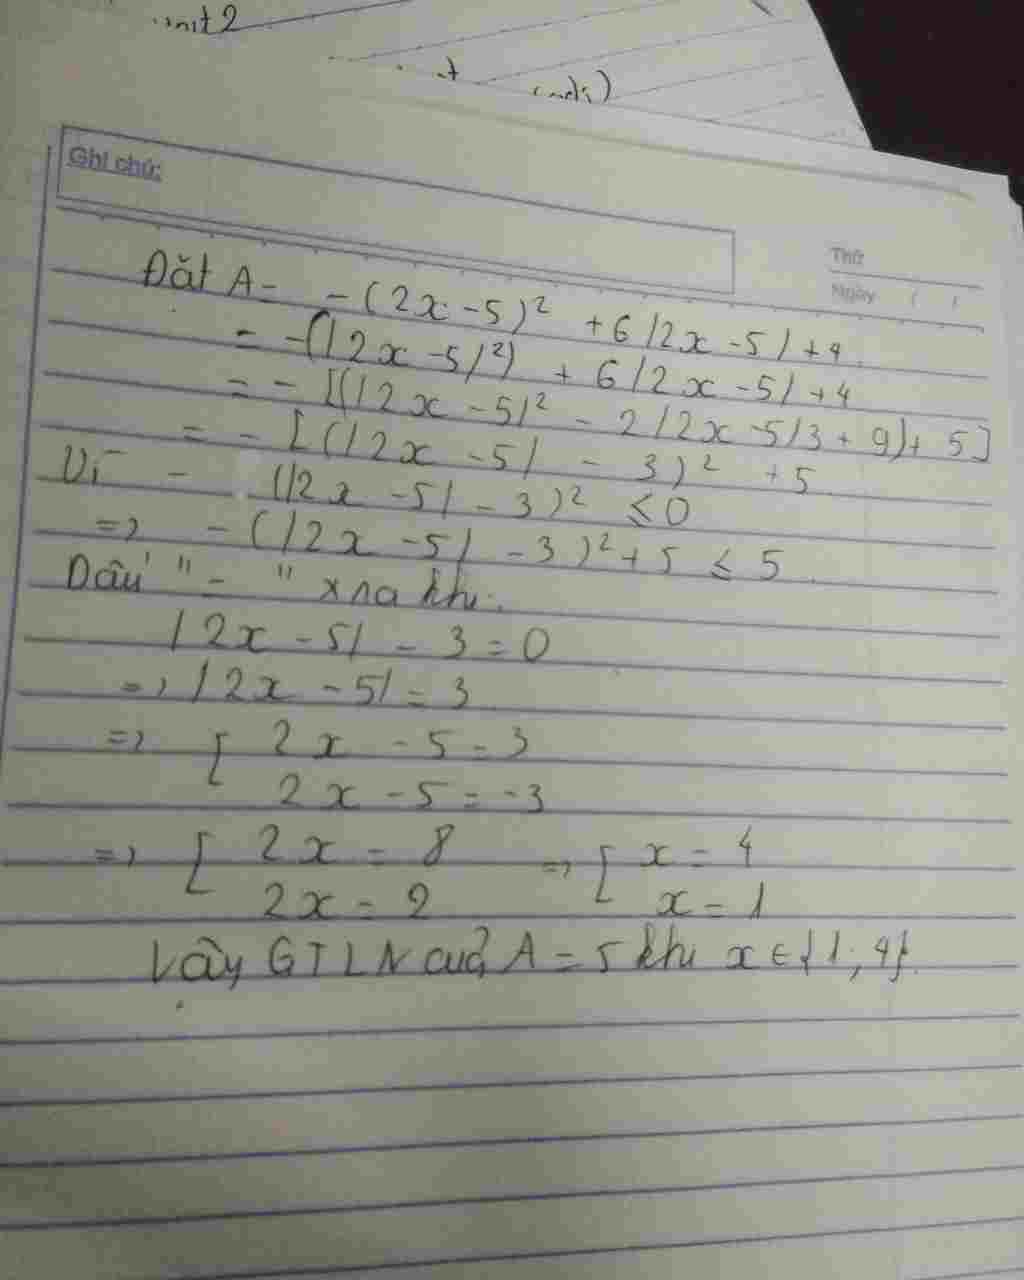 unit 2
Ghi chú:
Thứ
Ngày ( )
Đặt A = -(2x - 5)² + 6|2x - 5| + 4
= -(|2x - 5|²) + 6|2x - 5| + 4
= - [(|2x - 5|² - 2|2x - 5|3 + 9) + 5]
= - [(|2x - 5| - 3)² + 5
Vì - (|2x - 5| - 3)² ≤ 0
=> - (|2x - 5| - 3)² + 5 ≤ 5
Dấu " = " xra khi:
|2x - 5| - 3 = 0
=> |2x - 5| = 3
=> [ 2x - 5 = 3
2x - 5 = -3
=> [ 2x = 8 => [ x = 4
2x = 2 x = 1
Vậy GTLN của A = 5 khi x ∈ {1; 4}.